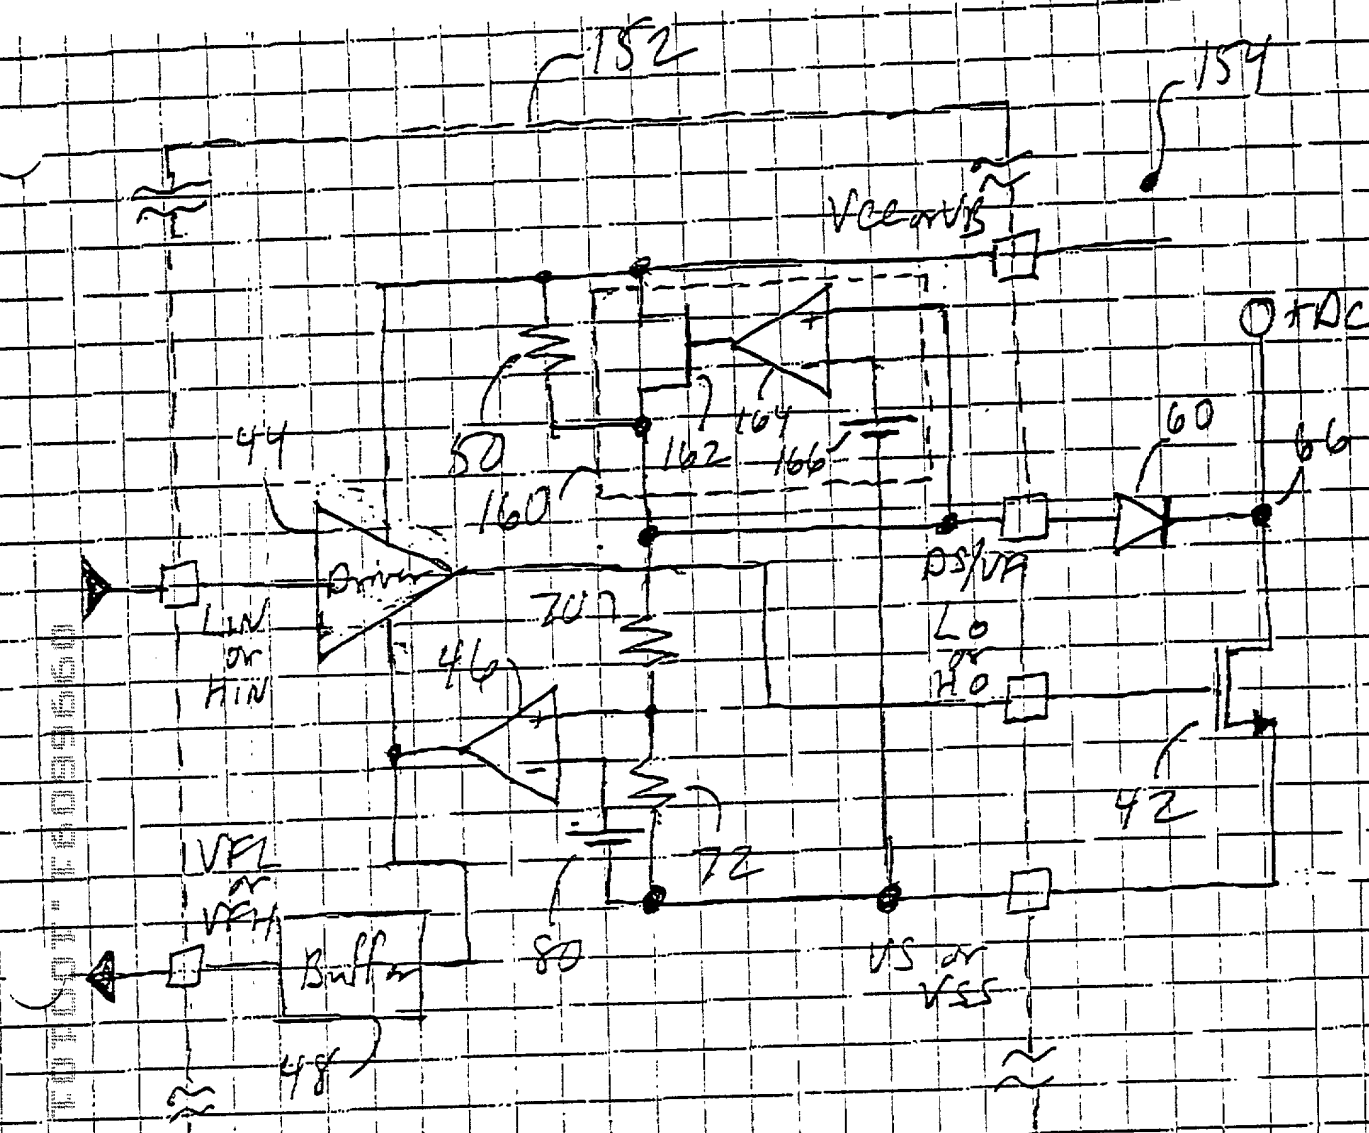 152
154
VCC or VB
+DC
+
50
160
162
164
166
60
66
44
Driver
LIN
or
HIN
DS/VA
LO
or
HO
70
46
+
-
42
72
80
VFL
or
VFH
Buffer
48
VS or
VSS